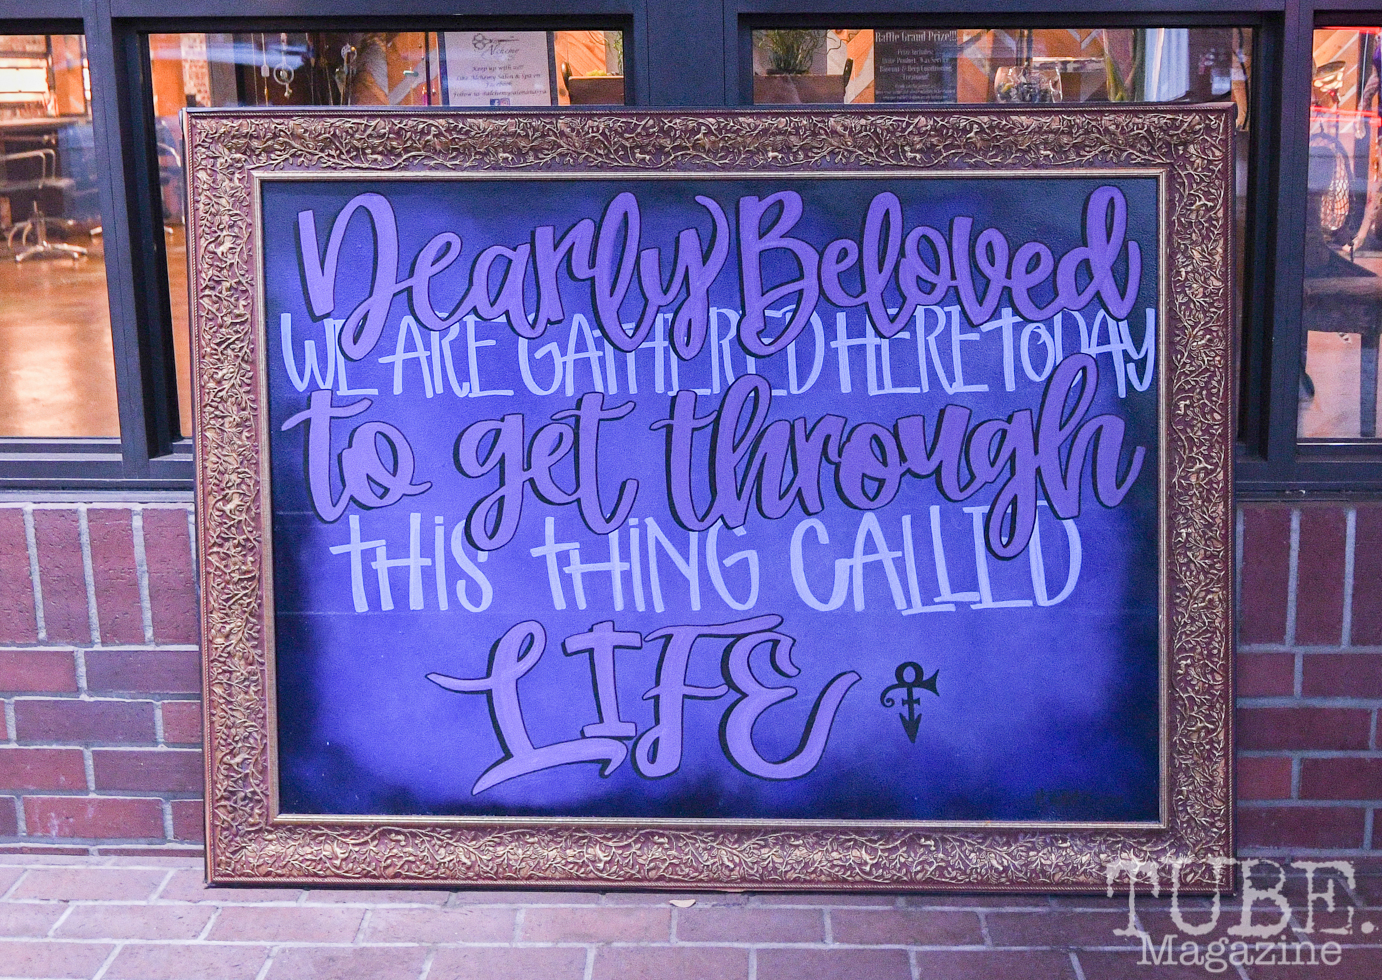 Alchemy
Keep up with us!!
Like Alchemy Salon & Spa on
Facebook
Raffle Grand Prize!!!
Dearly Beloved
WE ARE GATHERED HERE TODAY
to get through
THIS THING CALLED
LIFE
TUBE.
Magazine